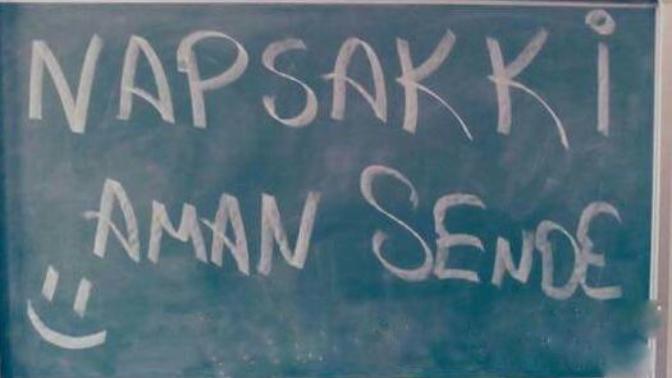 NAPSAKKİ
AMAN SENDE